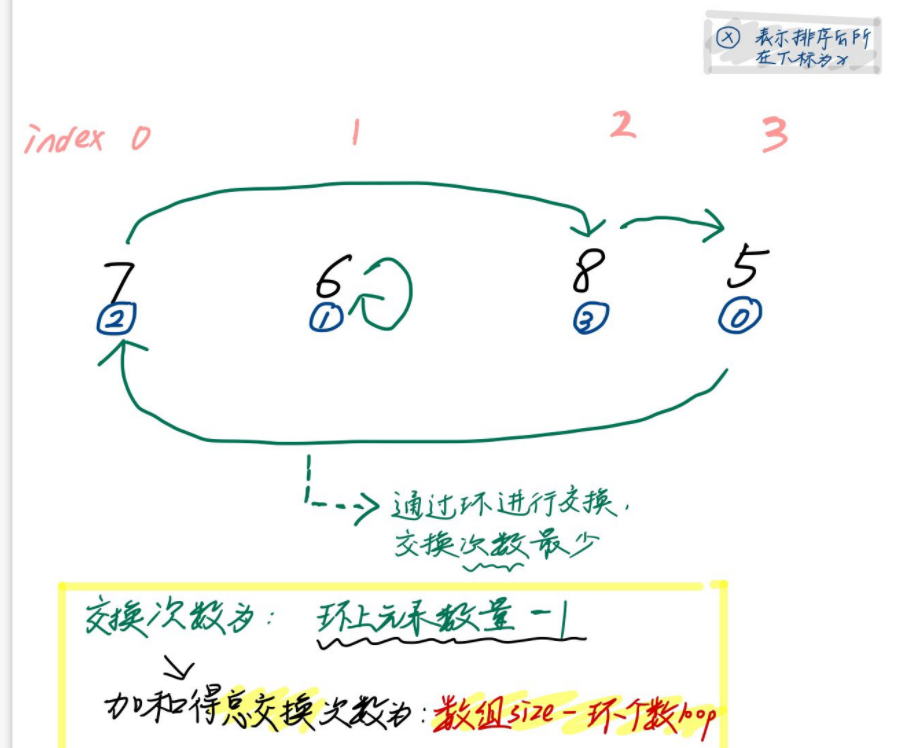 ⓧ 表示排序后所
在下标为x
index 0 1 2 3
7 6 8 5
② ① ③ ⓪
通过环进行交换,
交换次数最少
交换次数为: 环上元素数量-1
加和得总交换次数为:数组size-环个数loop